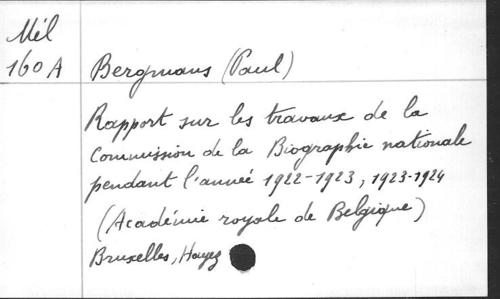 Mél
160 A
Bergmans (Paul)
Rapport sur les travaux de la
Commission de la Biographie nationale
pendant l'année 1922-1923, 1923-1924
(Académie royale de Belgique)
Bruxelles, Hayez